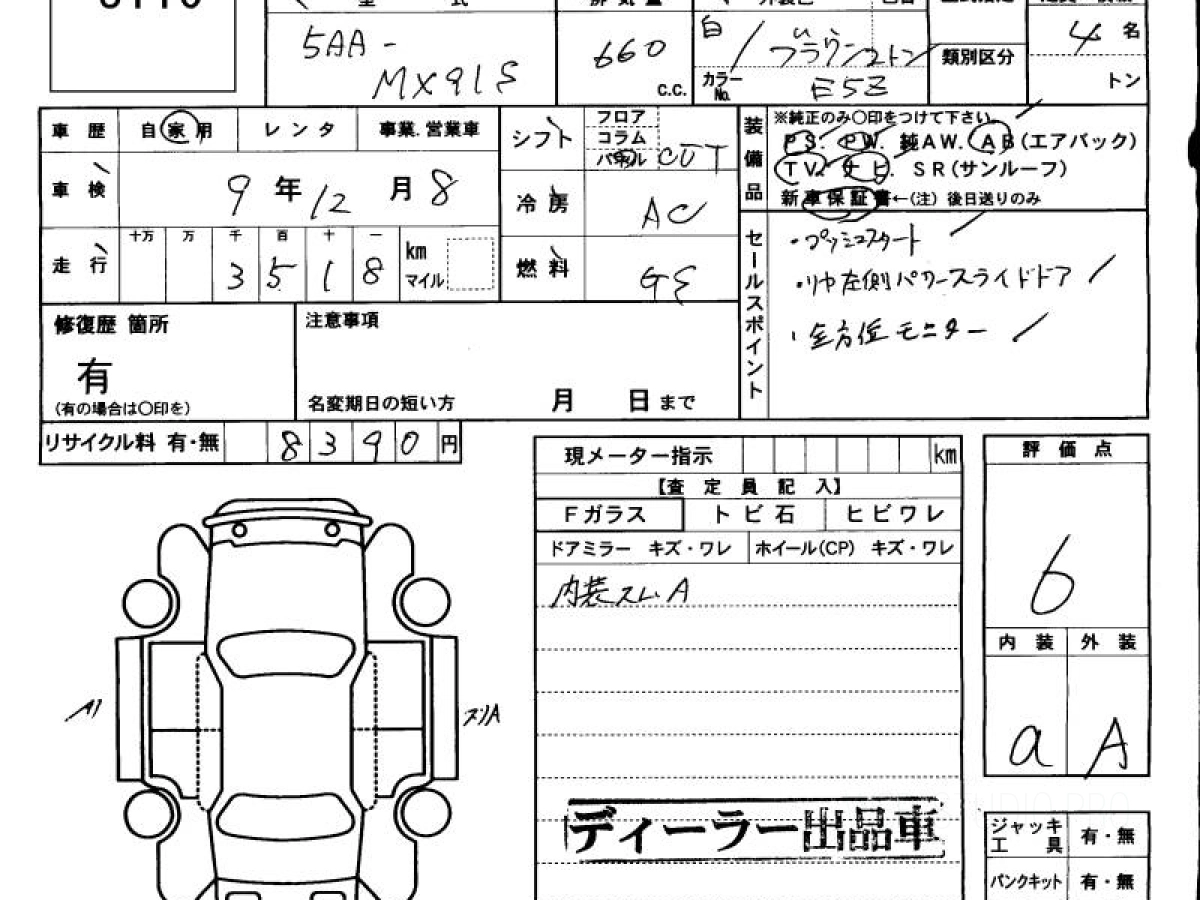 型 式
5AA-
MX91S
660
c.c.
白/ブラウン2トン
カラーNo. E5Z
類別区分
4 名
トン
車歴 自家用 レンタ 事業.営業車
車検 9 年 12 月 8
走行 十万 万 千 百 十 一
3 5 1 8 km マイル
シフト フロア コラム パネル CVT
冷房 AC
燃料
装備品
※純正のみ〇印をつけて下さい。
PS. PW. 純AW. AB(エアバック)
TV. ナビ. SR(サンルーフ)
新車保証書←(注) 後日送りのみ
セールスポイント
・プッシュスタート
・リヤ左側パワースライドドア
・全方位モニター
修復歴 箇所
有
(有の場合は〇印を)
注意事項
名変期日の短い方 月 日 まで
リサイクル料 有・無 8390 円
現メーター指示 km
【査定員記入】
Fガラス トビ石 ヒビワレ
ドアミラー キズ・ワレ ホイール(CP) キズ・ワレ
内装スレA
ディーラー出品車
評価点
6
内装 外装
a A
スリA
ジャッキ 工具 有・無
パンクキット 有・無